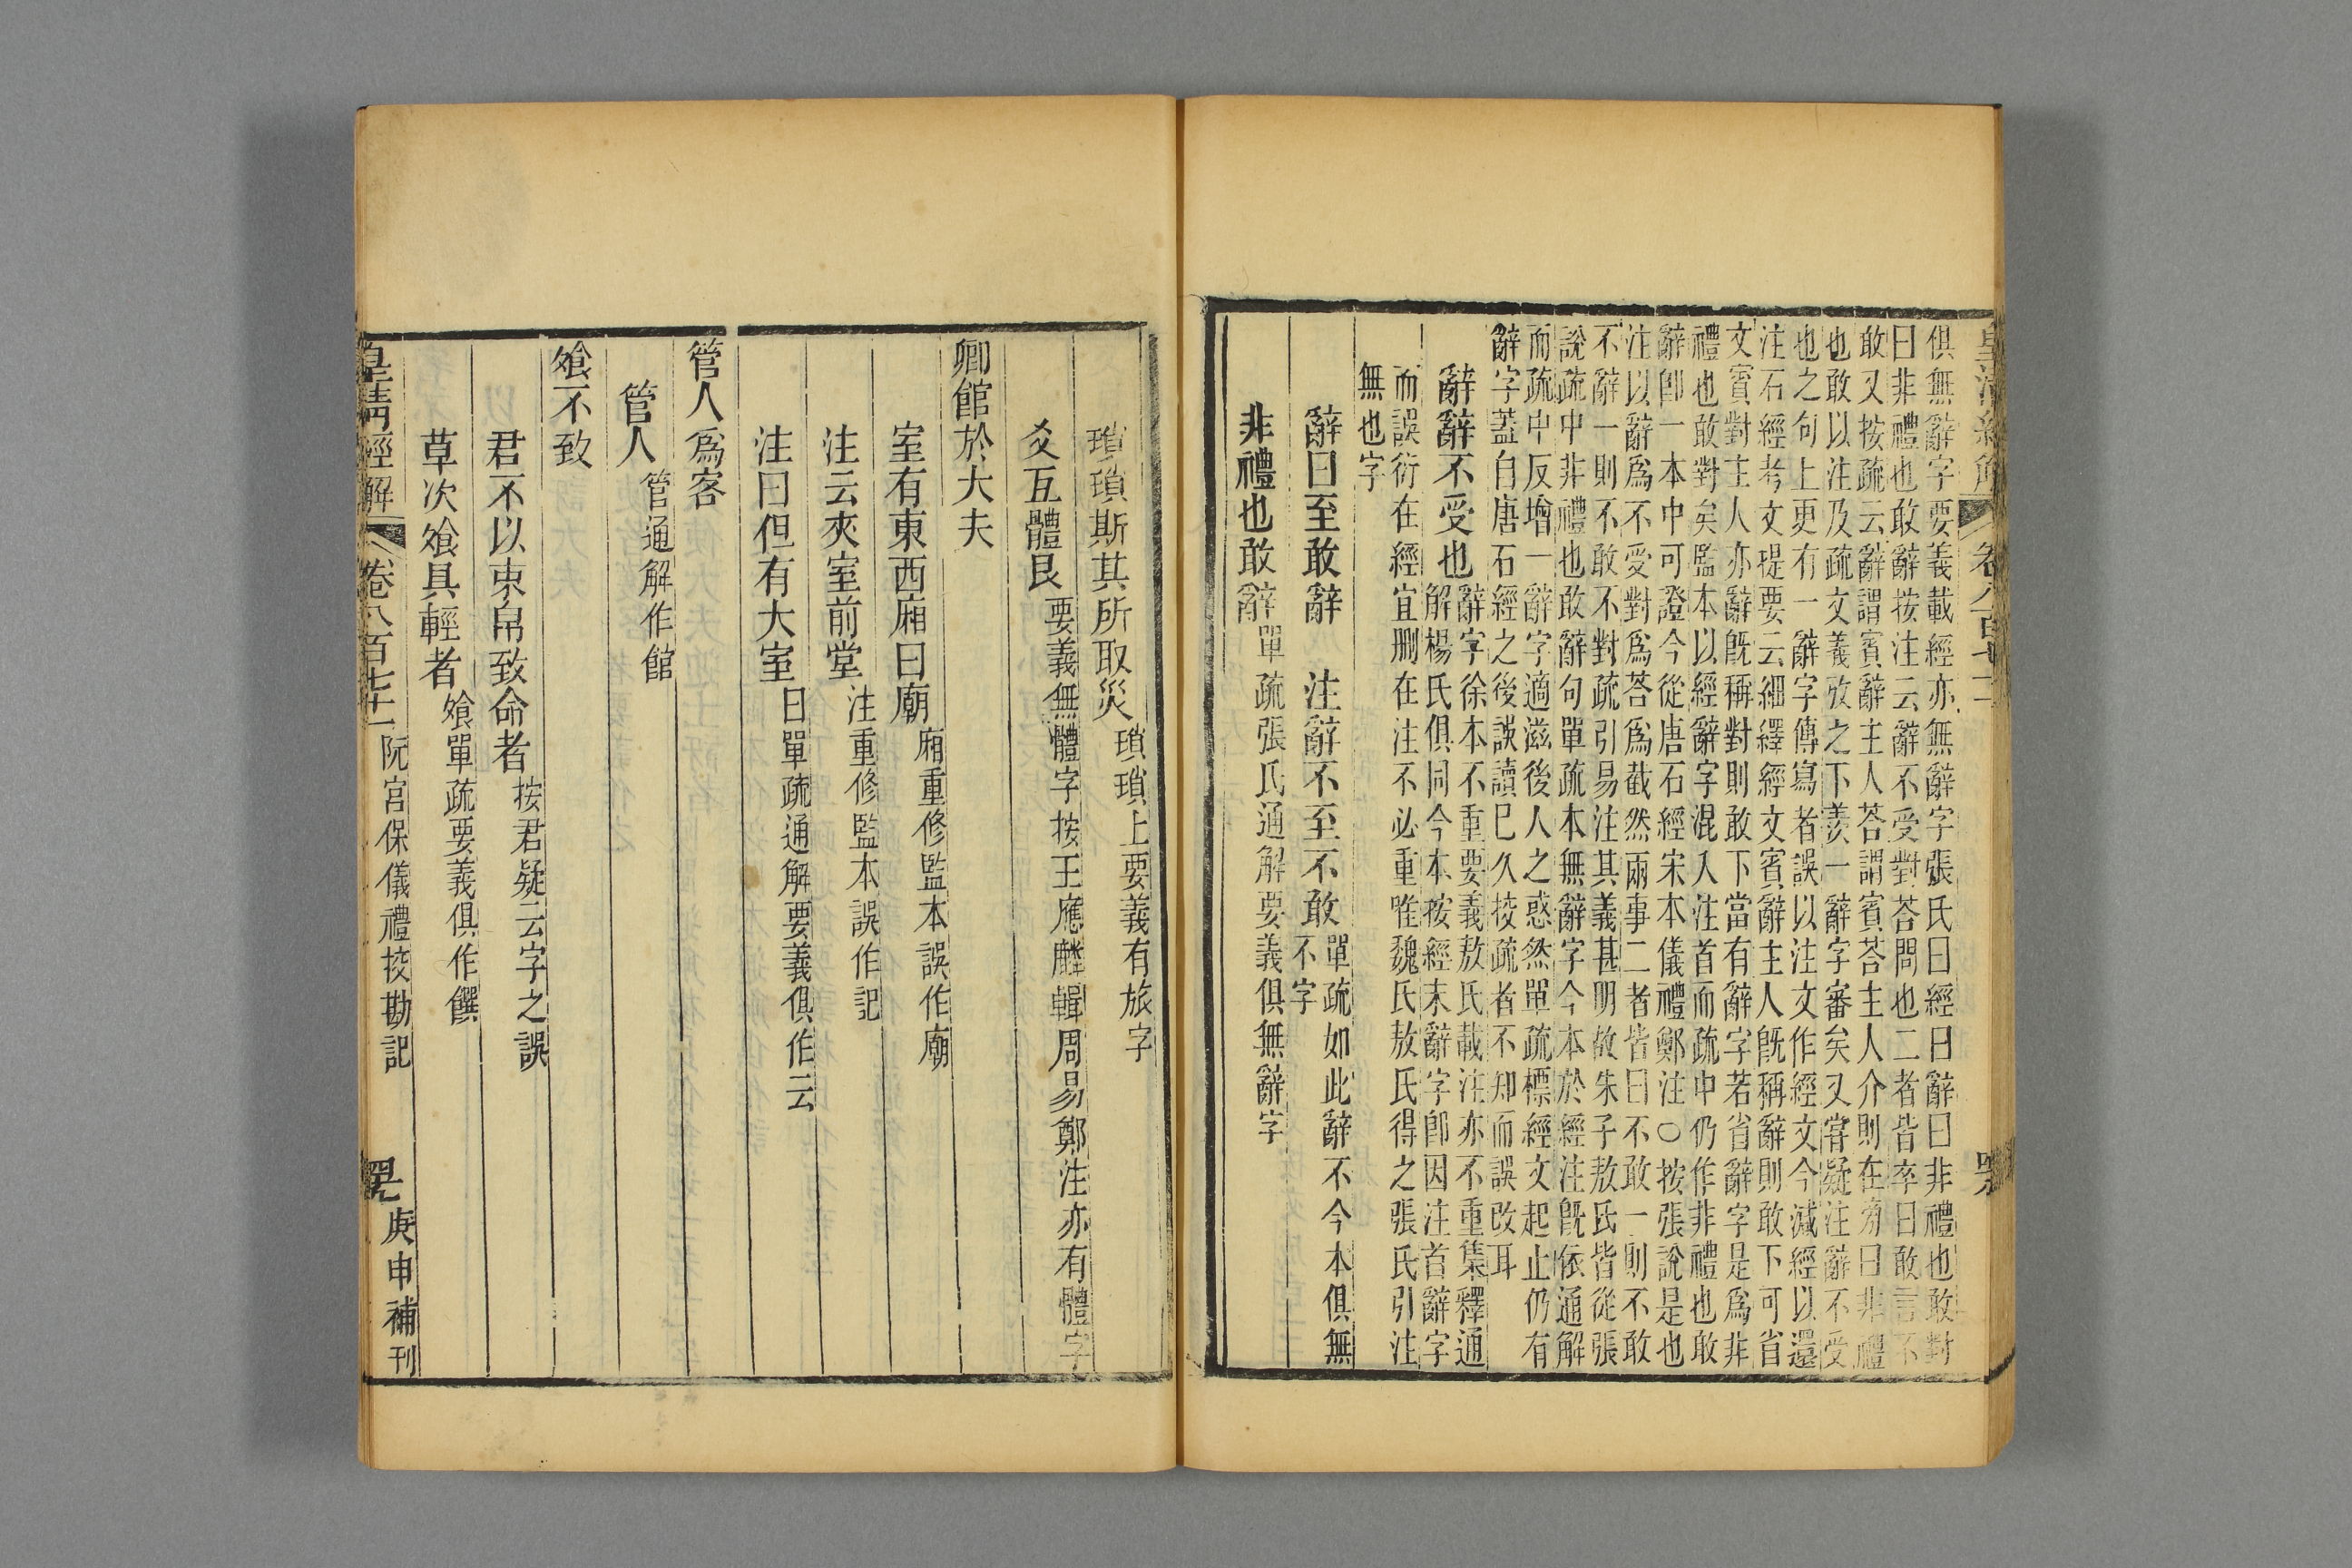 俱無辭字要義載經亦無辭字張氏曰經曰辭曰非禮也敢對
曰非禮也敢辭按注云辭不受對荅問也二者皆卒曰敢言不
敢又按疏云辭謂賓辭主人荅謂賓荅主人介則在旁曰非禮
也敢以注及疏文義攷之下羨一辭字審矣又嘗疑注辭不受
也之句上更有一辭字傳寫者誤以注文作經文今減經以還
注石經考文提要云細繹經文賓辭主人旣稱辭則敢下可省
文賓對主人亦辭旣稱對則敢下當有辭字若省辭字是爲非
禮也敢對矣監本以經辭字混入注首而疏中仍作非禮也敢
辭卽一本中可證今從唐石經宋本儀禮鄭注〇按張說是也
注以辭爲不受對爲荅爲截然兩事二者皆曰不敢一則不敢
不辭一則不敢不對疏引易注其義甚明故朱子敖氏皆從張
說疏中非禮也敢辭句單疏本無辭字今本於經注旣依通解
而疏中反增一辭字適滋後人之惑然單疏標經文起止仍有
辭字蓋自唐石經之後誤讀已久挍疏者不知而誤改耳
辭辭不受也辭字徐本不重要義敖氏載注亦不重集釋通
解楊氏俱同今本按經末辭字卽因注首辭字
而誤衍在經宜刪在注不必重唯魏氏敖氏得之張氏引注
無也字
辭曰至敢辭 注辭不至不敢單疏如此辭不今本俱無
不字
非禮也敢辭單疏張氏通解要義俱無辭字
瑣瑣斯其所取災瑣瑣上要義有旅字
爻互體艮要義無體字按王應麟輯周易鄭注亦有體字
卿館於大夫
室有東西廂曰廟廂重修監本誤作廟
注云夾室前堂注重修監本誤作記
注曰但有大室曰單疏通解要義俱作云
管人爲客
管人管通解作館
飧不致
君不以束帛致命者按君疑云字之誤
草次飧具輕者飧單疏要義俱作饌
皇清經解 卷八百七十二 阮宮保儀禮挍勘記 庚申補刊